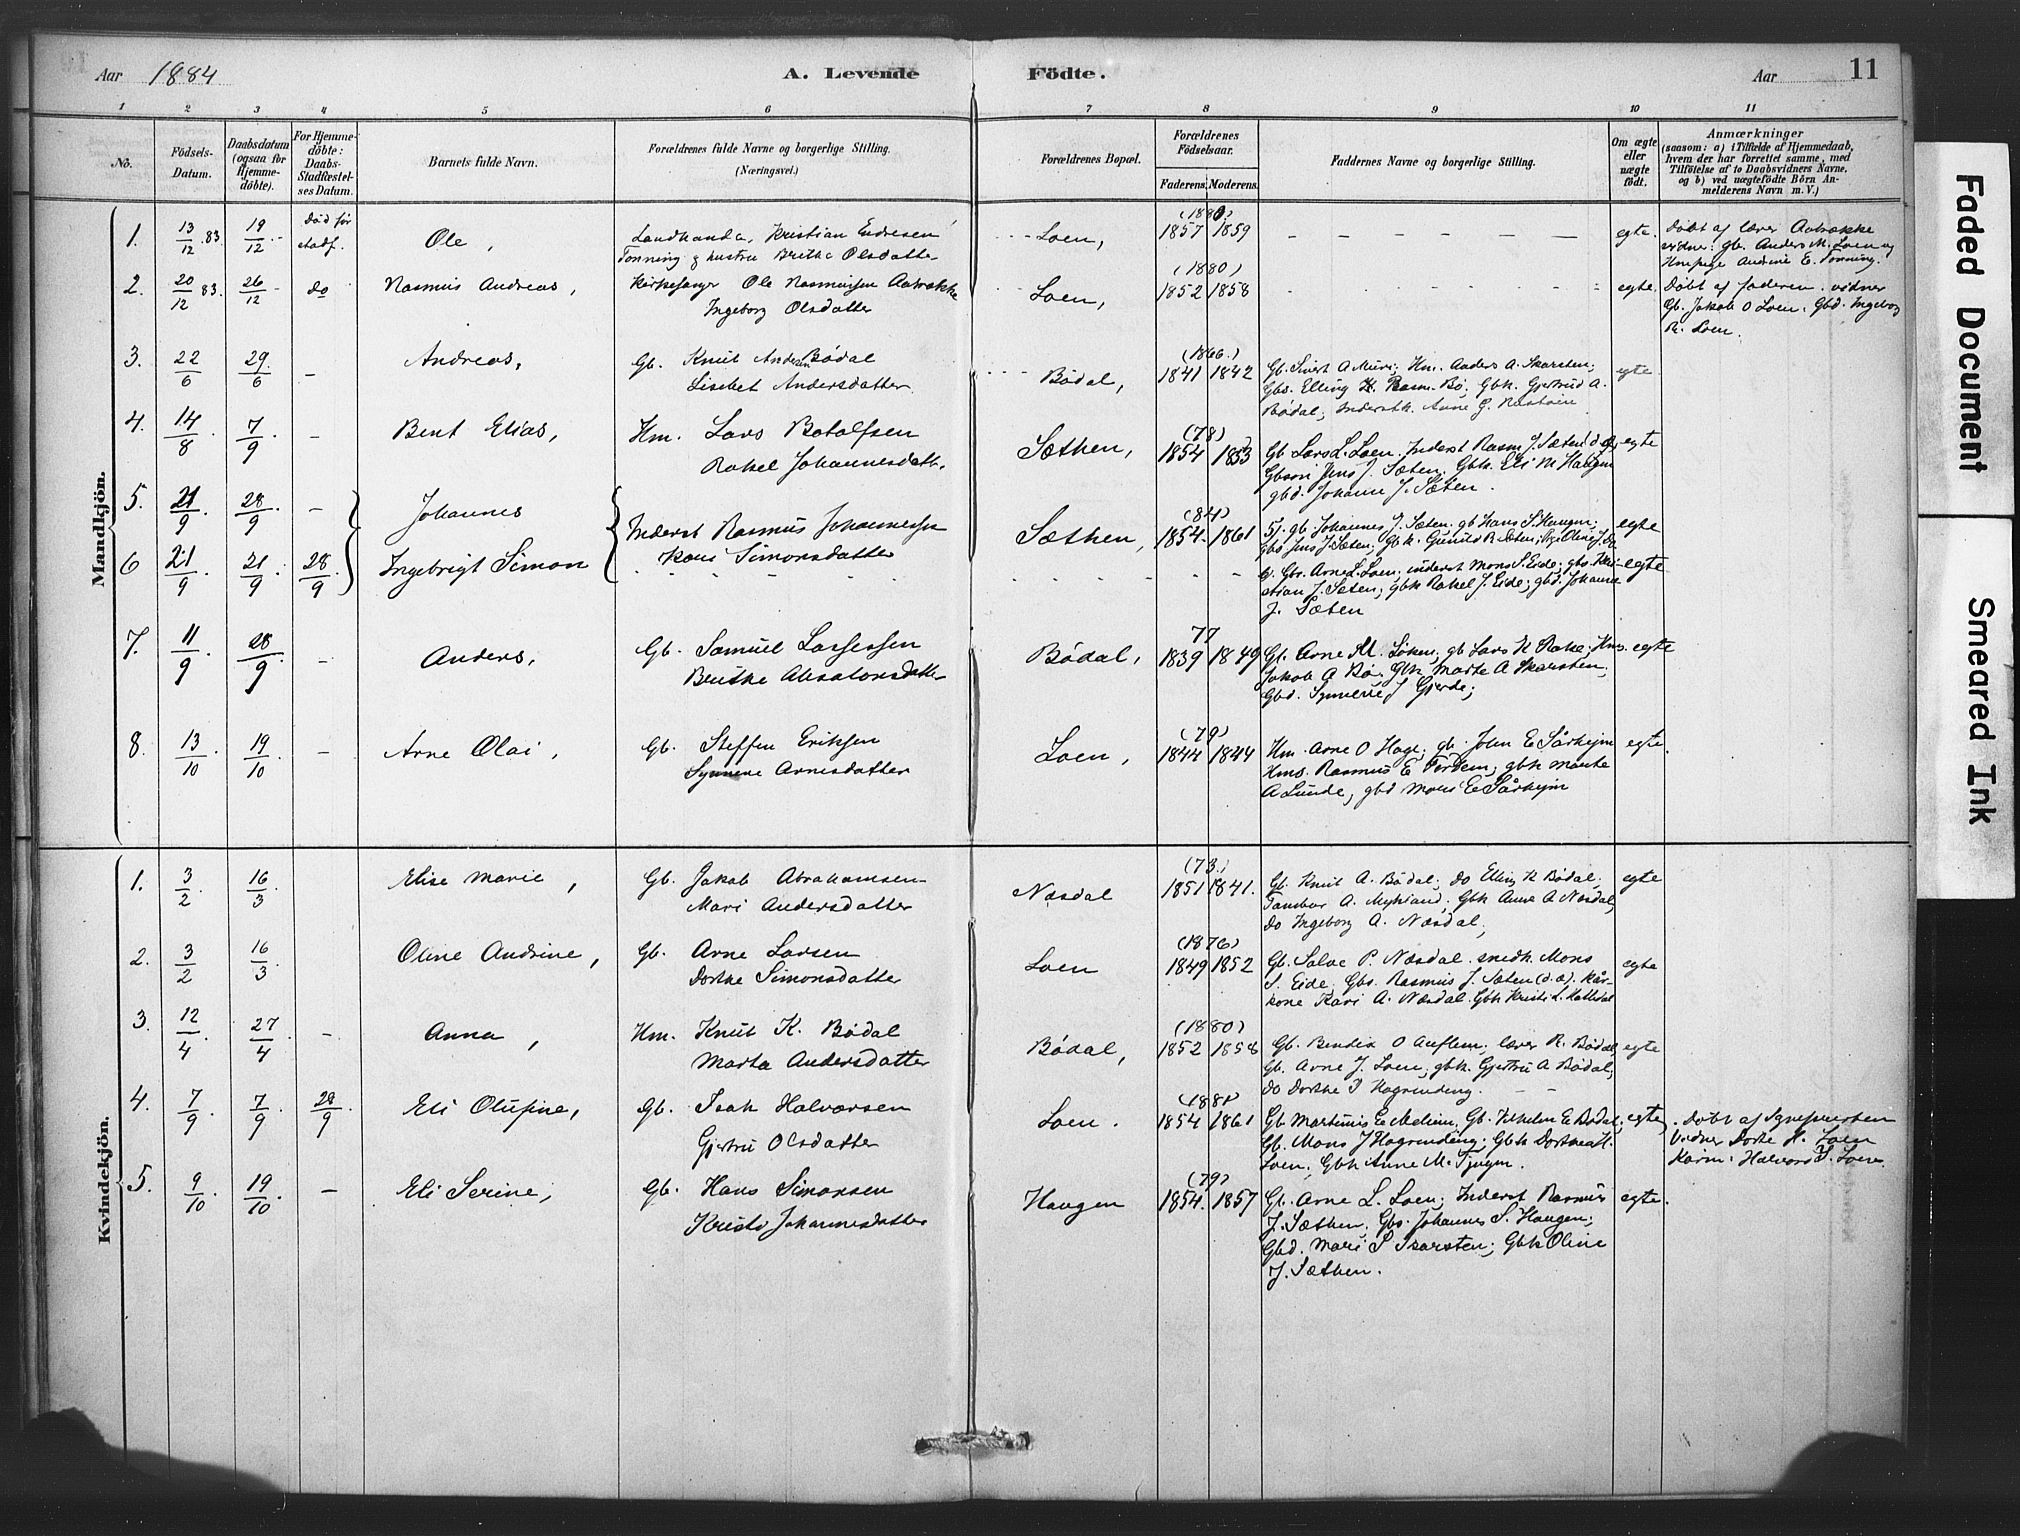 Aar 1884
A. Levende Födte.
Aar 11
1 2 3 4 5 6 7 8 9 10 11
No.
Födsels-Datum.
Daabsdatum (ogsaa for Hjemme-döbte).
For Hjemme-döbte: Daabs-Stadfæstel-ses Datum.
Barnets fulde Navn.
Forældrenes fulde Navne og borgerlige Stilling.
(Næringsvei.)
Forældrenes Bopæl.
Forældrenes Födselsaar.
Faderens. Moderens.
Faddernes Navne og borgerlige Stilling.
Om ægte eller uægte födt.
Anmærkninger
(saasom: a) i Tilfælde af Hjemmedaab,
hvem der har forrettet samme, med
Tilföielse af to Daabsvidners Navne,
og b) ved uægtefödte Börn An-
melderens Navn m. V.)
Mandkjön.
1. 13/12 83. 19/12 Død før stadf. Ole, Landhand. Kristian Endresen
Tonning & hustru Brithe Olsdatter
Loen, (1880) 1857 1859 egte. Døbt af lærer Aabrække
vidner: gb. Anders M. Loen og
Andrine E. Tonning.
2. 20/12 83. 26/12 do Rasmus Andreas, Kirkesanger Ole Rasmussen Aabrække
Ingeborg Olsdatter
Loen, (1880) 1852 1858 egte. Døbt af faderen. vidner
Gb. Jakob O Loen. Gbd. Ingeborg
R. Loen.
3. 22/6 29/6 – Andreas, Gb. Knut Andersen Bødal
Lisebet Andersdatter
Bødal, (1866.) 1841 1842 Gb. Sivert A Muri; Hm. Anders A. Skarsten;
Gbs. Elling K. Rasm. Bø; Gbk. Gjertrud A.
Bødal; Inderstk. Anne G. Rustøen
egte.
4. 14/8 7/9 – Bent Elias, Hm. Lars Botolfsen
Rakel Johannesdatt.
Sæthen, (78) 1854 1853 Gb Lars L. Loen. Inderst Rasm. J. Sæten
Gbsøn Jens J. Sæten. Gbk. Eli M Haugen
gbd. Johanne J. Sæten.
egte
5. 21/9 28/9 – Johannes
Inderst Rasmus Johannessen
Kari Simonsdatter
Sæthen, (84) 1854. 1861 5). gb. Johannes J. Sæten. gb Hans S. Haugen;
Gbs Jens J. Sæten; gbk. Gunild R. Sæten; Oline J.
egte
6 21/9 21/9 28/9 Ingebrigt Simon
6. Gbr. Arne L. Loen; inderst Mons S. Eide; gbs. Kri-
stian J. Sæten; gbk Rakel J. Eide; gbd. Johanne
J. Sæten
egte
7. 11/9 28/9 – Anders, Gb. Samuel Lassesen
Brithe Absalonsdatter
Bødal, 77 1839 1849 Gb. Arne M. Loken; gb Lars K Rake; Hms.
Jakob A Bø; Gbk. Marte A Skarsten;
Gbd. Synneve J Gjerde;
egte
8. 13/10 19/10 – Arne Olai, Gb. Steffen Eriksen
Synneve Arnesdatter
Loen, (79) 1844 1844 Hm. Arne O Hage; gb. John E Sårheim
Hms. Rasmus E Tordem; gbk Marte
A Lunde; gbd Mons E Sårheim
egte.
Kvindekjön.
1. 3/2 16/3 Elise Marie, Gb. Jakob Abrahamsen
Mari Andersdatter
Næsdal (73.) 1851 1841. Gb. Knut A. Bødal; do Elling K Bødal;
Tambur A. Mykland; Gbk Anne A Nesdal;
do Ingeborg A. Næsdal,
egte
2. 3/2 16/3 Oline Andrine, Gb. Arne Larsen
Dorthe Simonsdatter
Loen (1876) 1849 1852 Gb. Salve P. Næsdal. snedk. Mons
S. Eide, Gbs. Rasmus J. Sæten (d.æ). Kår-
kone Kari A. Næsdal. Gbk Kristi L. Hatledal
egte
3. 12/4 27/4 – Anna, Hm. Knut K. Bødal
Marta Andersdatter
Bødal, (1880) 1852 1858 Gb. Bendix O Auflem; lærer R. Bødal,
Gb. Arne J. Loen; gbk. Gjertru A Bødal;
do Dorthe I Hogrending.
egte
4. 7/9 7/9 28/9 Eli Olufine, Gb. Isak Halvorsen
Gjertru Olsdatter
Loen. (1881) 1854 1861 Gb Martinus E Melheim; Gb. Vilhelm E Bødal;
Gb. Mons J Hogrending; Gbk Dorthea H.
Loen; Gbk Anne M. Tjugen.
egte. Døbt af
Vidner Dorte H. Loen
Karm. Halvord I. Loen.
5. 9/10 19/10 – Eli Serine, Gb. Hans Simonsen
Kristi Johannesdatter
Haugen (79) 1854. 1857 Gb. Arne L. Loen; Inderst Rasmus
J. Sæthen; Gbs. Johannes S. Haugen;
Gbd. Mari S Skarsten; Gbk Oline
J. Sæthen.
egte.
Faded Document
Smeared Ink